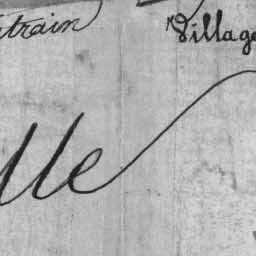 train Village
lle